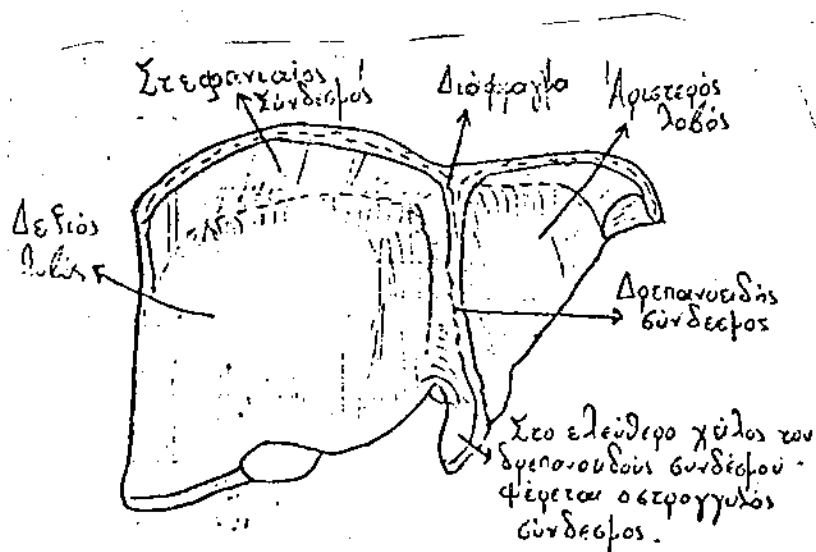 Στεφανιαίος
Σύνδεσμος
Διάφραγμα
Ἀριστερός
λοβός
Δεξιός
λοβός
Δρεπανοειδής
σύνδεσμος
Στο ελεύθερο χείλος του
δρεπανοειδούς συνδέσμου
φέρεται ο στρογγυλός
σύνδεσμος.